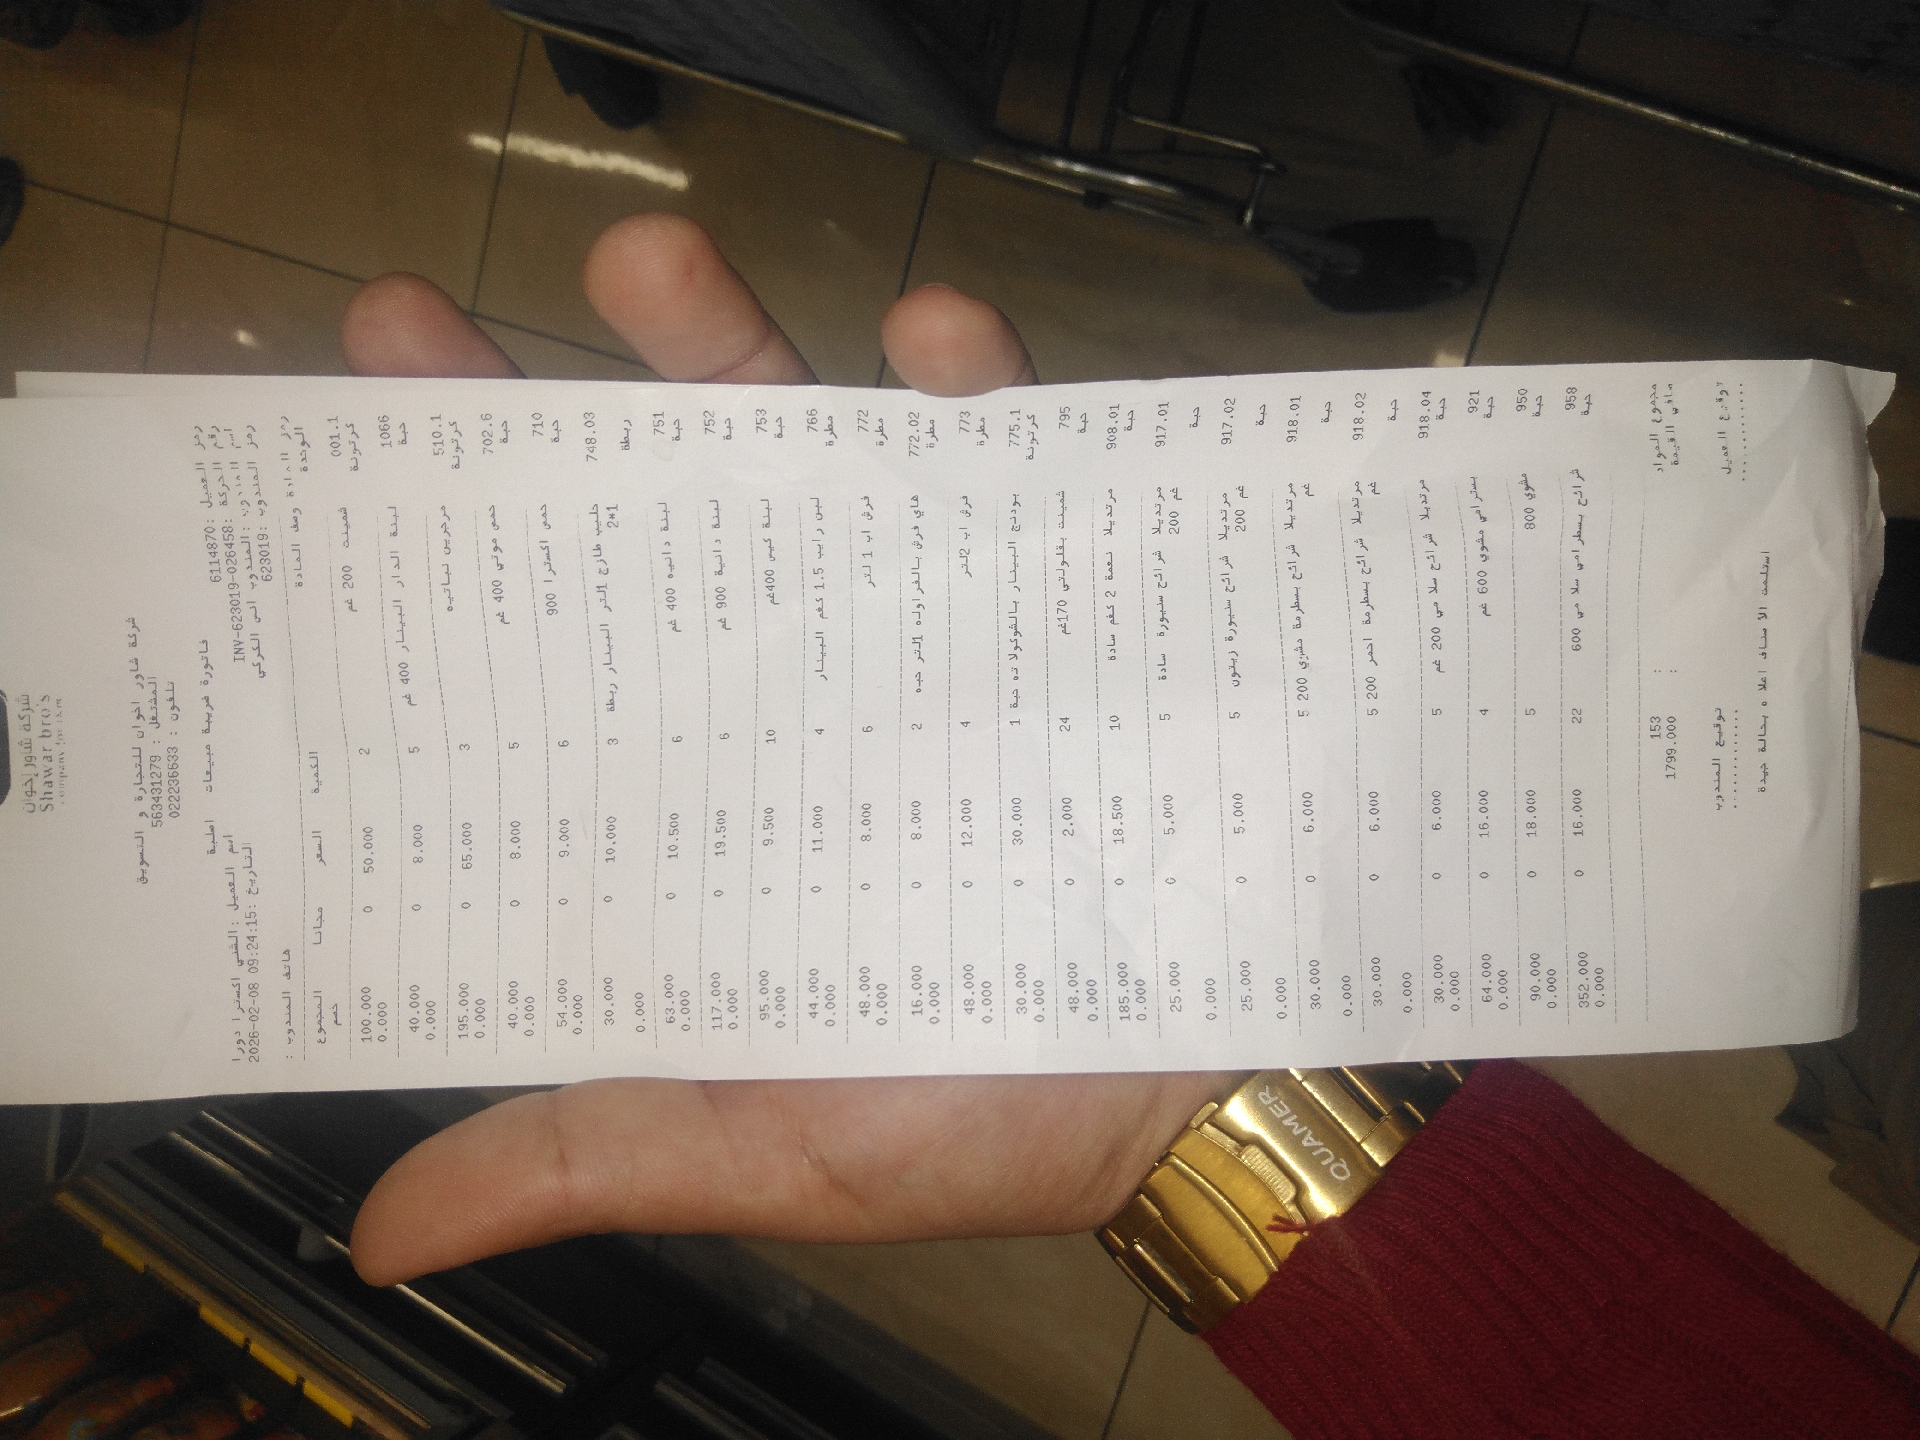 شركة شاور إخوان
Shawar bro's
شركة شاور اخوان للتجارة و التسويق
المشتغل : 563431279
تلفون : 022236633
فاتورة ضريبية مبيعات اصلية
رمز العميل: 6114870 اسم العميل :الشني اكسترا دورا
رقم الحركة: INV-623019-026458 التاريخ :2026-02-08 09:24:15
اسم المندوب: المندوب انس الكركي
رمز المندوب: 623019 هاتف المندوب :
رمز المادة وصف المادة
الوحدة الكمية السعر مجانا المجموع
خصم
001.1 شمينت 200 غم
كرتونة 2 50.000 0 100.000
0.000
1066 لبنة الدار البينار 400 غم
حبة 5 8.000 0 40.000
0.000
510.1 مرجرين نباتيه
كرتونة 3 65.000 0 195.000
0.000
702.6 حمص موتي 400 غم
حبة 5 8.000 0 40.000
0.000
710 حمص اكسترا 900
حبة 6 9.000 0 54.000
0.000
748.03 حليب طازج 1لتر البينار ربطة
2*1
ربطة 3 10.000 0 30.000
0.000
751 لبنة دانيه 400 غم
حبة 6 10.500 0 63.000
0.000
752 لبنة دانية 900 غم
حبة 6 19.500 0 117.000
0.000
753 لبنة كيس 400غم
حبة 10 9.500 0 95.000
0.000
766 لبن رايب 1.5 كغم البينار
مطرة 4 11.000 0 44.000
0.000
772 فرش اب 1 لتر
مطرة 6 8.000 0 48.000
0.000
772.02 هاي فرش بالفراوله 1لتر حبه
مطرة 2 8.000 0 16.000
0.000
773 فرش اب 2لتر
مطرة 4 12.000 0 48.000
0.000
775.1 بودنج البينار بالشوكولاته حبة
كرتونة 1 30.000 0 30.000
0.000
795 شمينت بقلولتي 170غم
حبة 24 2.000 0 48.000
0.000
908.01 مرتديلا نعمة 2 كغم سادة
حبة 10 18.500 0 185.000
0.000
917.01 مرتديلا شرائح سنيورة سادة
200 غم
حبة 5 5.000 0 25.000
0.000
917.02 مرتديلا شرائح سنيورة زيتون
200 غم
حبة 5 5.000 0 25.000
0.000
918.01 مرتديلا شرائح بسطرمة مشوي 200
غم
حبة 5 6.000 0 30.000
0.000
918.02 مرتديلا شرائح بسطرمة احمر 200
غم
حبة 5 6.000 0 30.000
0.000
918.04 مرتديلا شرائح سلامي 200 غم
حبة 5 6.000 0 30.000
0.000
921 بسترامي مشوي 600 غم
حبة 4 16.000 0 64.000
0.000
950 مشوي 800
حبة 5 18.000 0 90.000
0.000
958 شرائح بسطرامي سلامي 600
حبة 22 16.000 0 352.000
0.000
مجموع المواد : 153
صافي القيمة : 1799.000
توقيع العميل توقيع المندوب
............ ............
استلمت الاصناف اعلاه بحالة جيدة
QUAMER